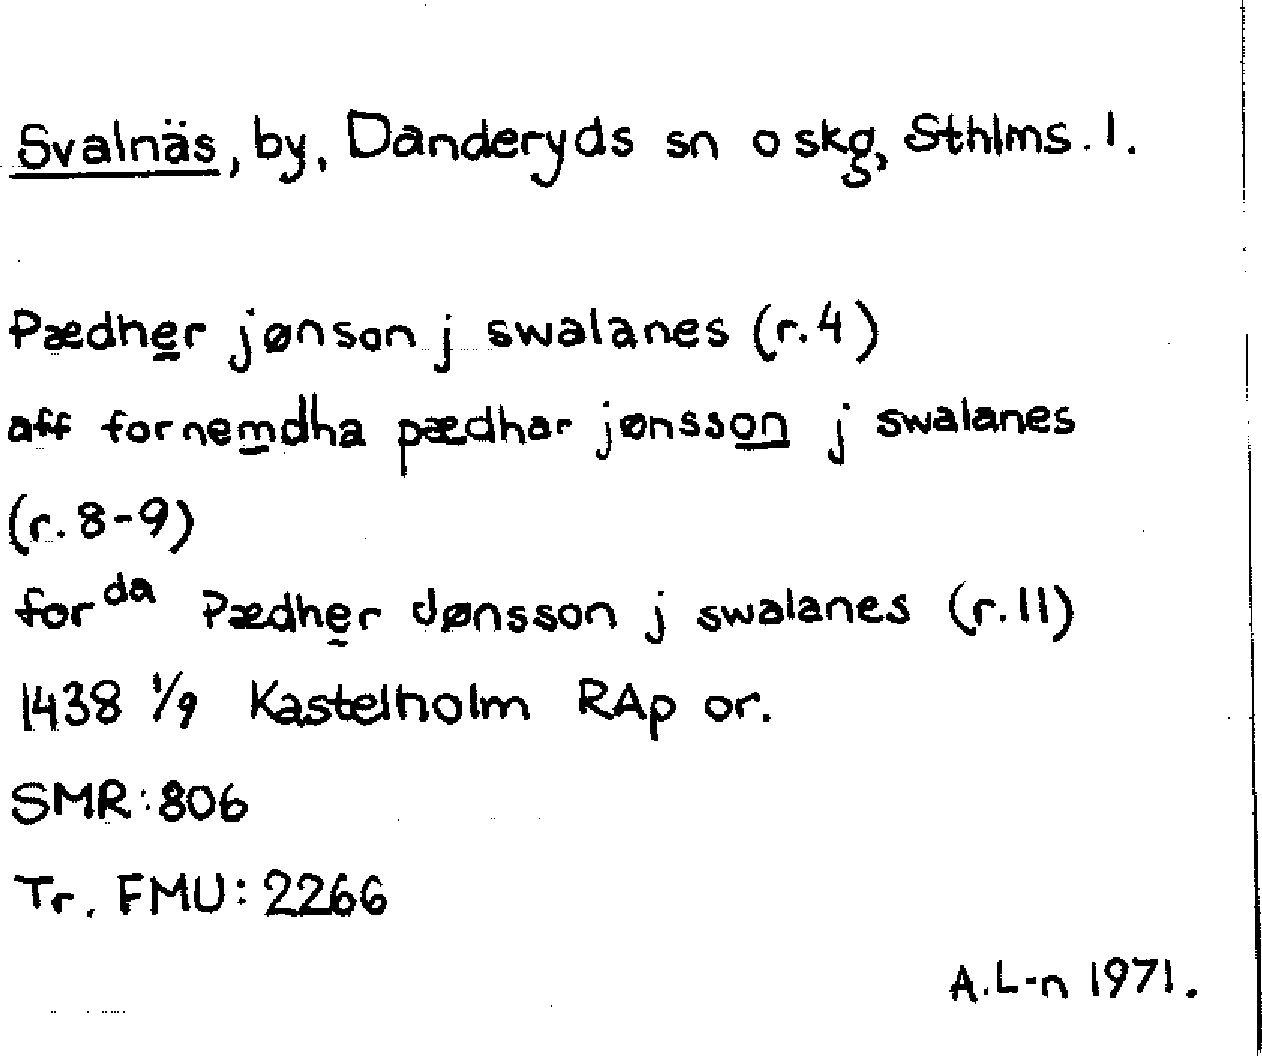 Svalnäs, by, Danderyds sn o skg, Sthlms. l.
Pædher jønson j swalanes (r.4)
aff fornemdha pædhar jønsson j swalanes
(r.8-9)
for da Pædher Jønsson j swalanes (r.11)
1438 1/9 Kastelholm RAp or.
SMR:806
Tr. FMU:2266
A.L-n 1971.